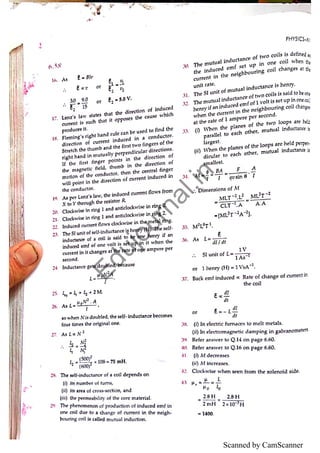 PHYSICS-XI
6.58
16. As ℰ = Blv
ℰ ∝ v or ℰ₁/ℰ₂ = v₁/v₂
∴ 3.0/ℰ₂ = 9.0/15 or ℰ₂ = 5.0 V.
17. Lenz's law states that the direction of induced
current is such that it opposes the cause which
produces it.
18. Fleming's right hand rule can be used to find the
direction of current induced in a conductor.
Stretch the thumb and the first two fingers of the
right hand in mutually perpendicular directions.
If the first finger points in the direction of
the magnetic field, thumb in the direction of
motion of the conductor, then the central finger
will point in the direction of current induced in
the conductor.
19. As per Lenz's law, the induced current flows from
X to Y through the resistor R.
20. Clockwise in ring 1 and anticlockwise in ring 2.
21. Clockwise in ring 1 and anticlockwise in ring 2.
22. Induced current flows clockwise in the metal ring.
23. The SI unit of self-inductance is henry (H). The self-
inductance of a coil is said to be one henry if an
induced emf of one volt is set up in it when the
current in it changes at the rate of one ampere per
second.
24. Inductance gets doubled because
L =
25. = 2 M.
26. As L = μ₀N²A / l
so when N is doubled, the self-inductance becomes
four times the original one.
27. As L ∝ N²
∴ L₂/L₁ = N₂²/N₁²
× 108 = 75 mH.
28. The self-inductance of a coil depends on
(i) its number of turns,
(ii) its area of cross-section, and
(iii) the permeability of the core material.
29. The phenomenon of production of induced emf in
one coil due to a change of current in the neigh-
bouring coil is called mutual induction.
30. The mutual inductance of two coils is defined as
the induced emf set up in one coil when the
current in the neighbouring coil changes at the
unit rate.
31. The SI unit of mutual inductance is henry.
32. The mutual inductance of two coils is said to be one
henry if an induced emf of 1 volt is set up in one coil
when the current in the neighbouring coil changes
at the rate of 1 ampere per second.
33. (i) When the planes of the two loops are held
parallel to each other, mutual inductance is
largest.
(ii) When the planes of the loops are held perpen-
dicular to each other, mutual inductance is
smallest.
∴ Dimensions of M
= MLT⁻² L² / CLT⁻¹ A = ML²T⁻² / A A
= [ML²T⁻²A⁻²].
36. As L = ℰ / dI/dt
∴ SI unit of L = 1 V / 1 As⁻¹
or 1 henry (H) = 1 VsA⁻¹.
37. Back emf induced ∝ Rate of change of current in
the coil
ℰ ∝ dI/dt
or ℰ = − L dI/dt
38. (i) In electric furnaces to melt metals.
(ii) In electromagnetic damping in galvanometers.
39. Refer answer to Q.14 on page 6.60.
40. Refer answer to Q.16 on page 6.60.
41. (i) M decreases
(ii) M increases.
42. Clockwise when seen from the solenoid side.
43. μᵣ = μ/μ₀ = L/L₀
= 2.8 H / 2 mH = 2.8 H / 2 × 10⁻³ H
= 1400.
Scanned by CamScanner